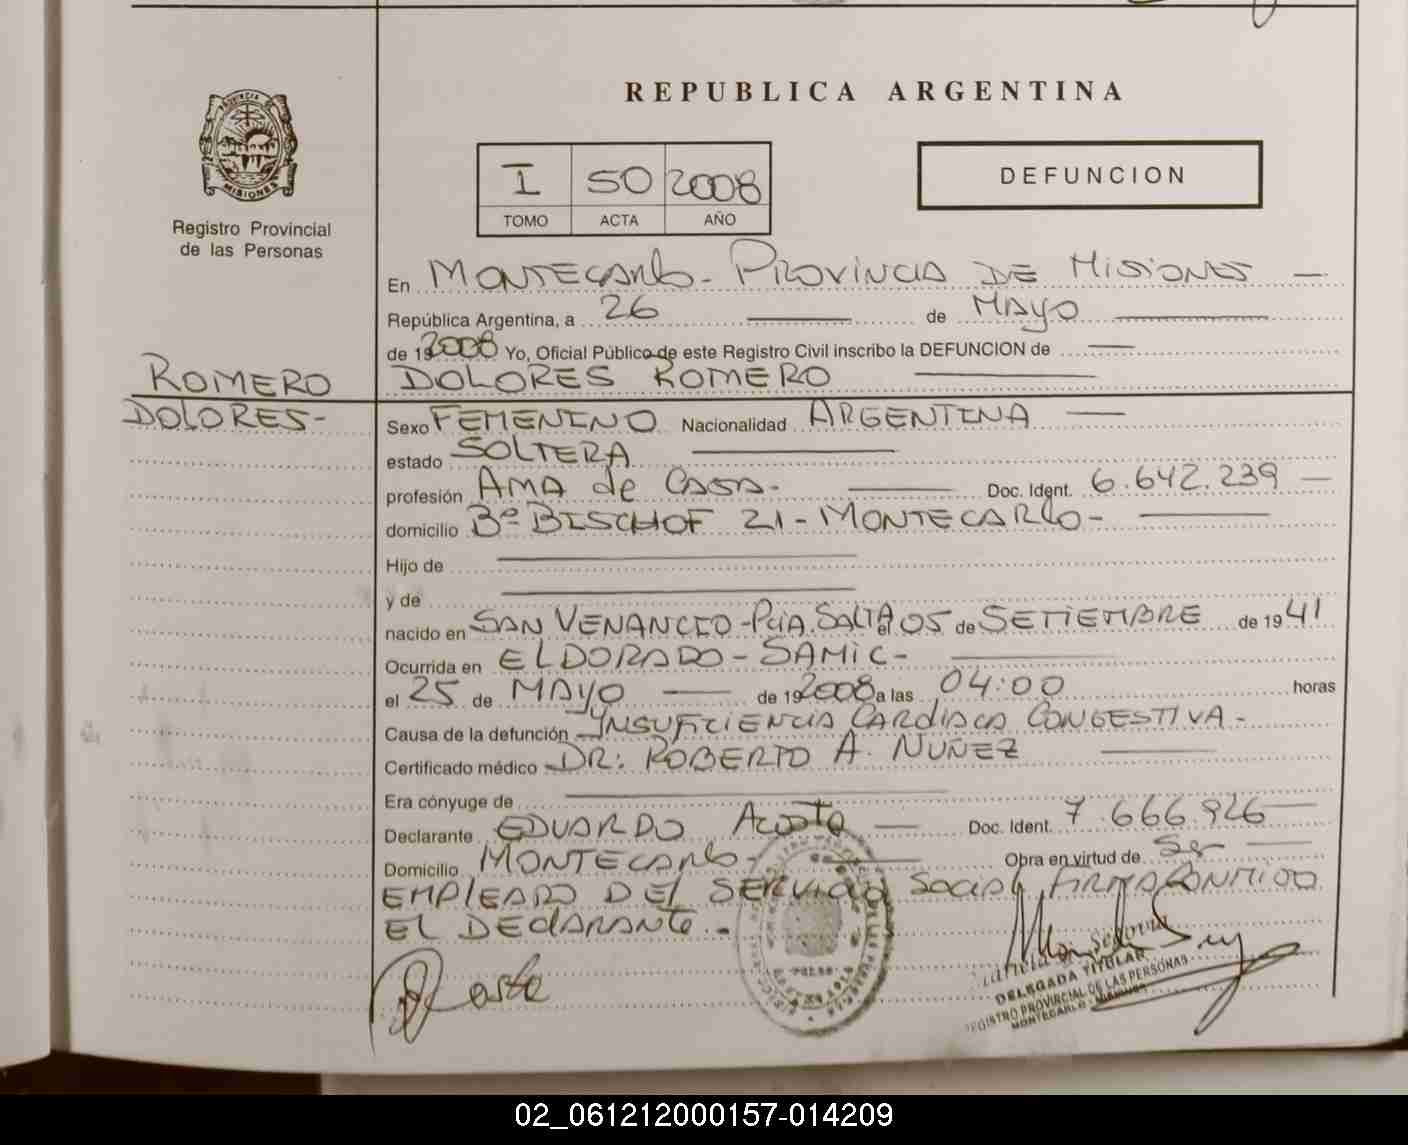 REPUBLICA ARGENTINA
PROVINCIA DE
MISIONES
Registro Provincial
de las Personas
I 50 2008
TOMO ACTA AÑO
DEFUNCION
En MONTECARLO - PROVINCIA DE MISIONES
República Argentina, a 26 de MAYO
de 19 2008 Yo, Oficial Público de este Registro Civil inscribo la DEFUNCION de
DOLORES ROMERO
ROMERO
DOLORES-
Sexo FEMENINO Nacionalidad ARGENTINA
estado SOLTERA
profesión AMA de CASA- Doc. Ident. 6.642.239
domicilio Bº BISCHOF 21 - MONTECARLO-
Hijo de
y de
nacido en SAN VENANCIO - Pcia. SALTA el 05 de SETIEMBRE de 19 41
Ocurrida en ELDORADO - SAMIC-
el 25 de MAYO de 19 2008 a las 04:00 horas
Causa de la defunción YNSUFICIENCIA CARDIACA CONGESTIVA-
Certificado médico DR. ROBERTO A. NUÑEZ
Era cónyuge de
Declarante EDUARDO ACOSTA Doc. Ident. 7.666.926
Domicilio MONTECARLO- Obra en virtud de Ser
EMPLEADO DEL SERVICIO SOCIAL, FIRMA CONMIGO
EL DECLARANTE.-
DELEGADA TITULAR
REGISTRO PROVINCIAL DE LAS PERSONAS
MONTECARLO - MISIONES
02_061212000157-014209